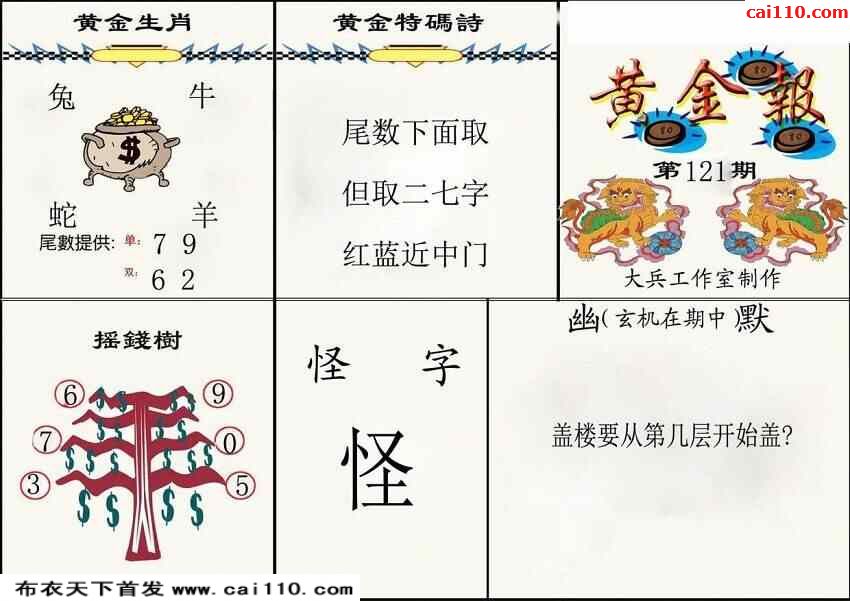 cai110.com
黄金生肖
兔 牛
$
蛇 羊
尾數提供: 单: 7 9
双: 6 2
黄金特碼詩
尾数下面取
但取二七字
红蓝近中门
黄金報
80
80
80
第121期
大兵工作室制作
摇錢樹
6 9
7 0
3 5
怪 字
怪
幽(玄机在期中)默
盖楼要从第几层开始盖?
布衣天下首发 www.cai110.com